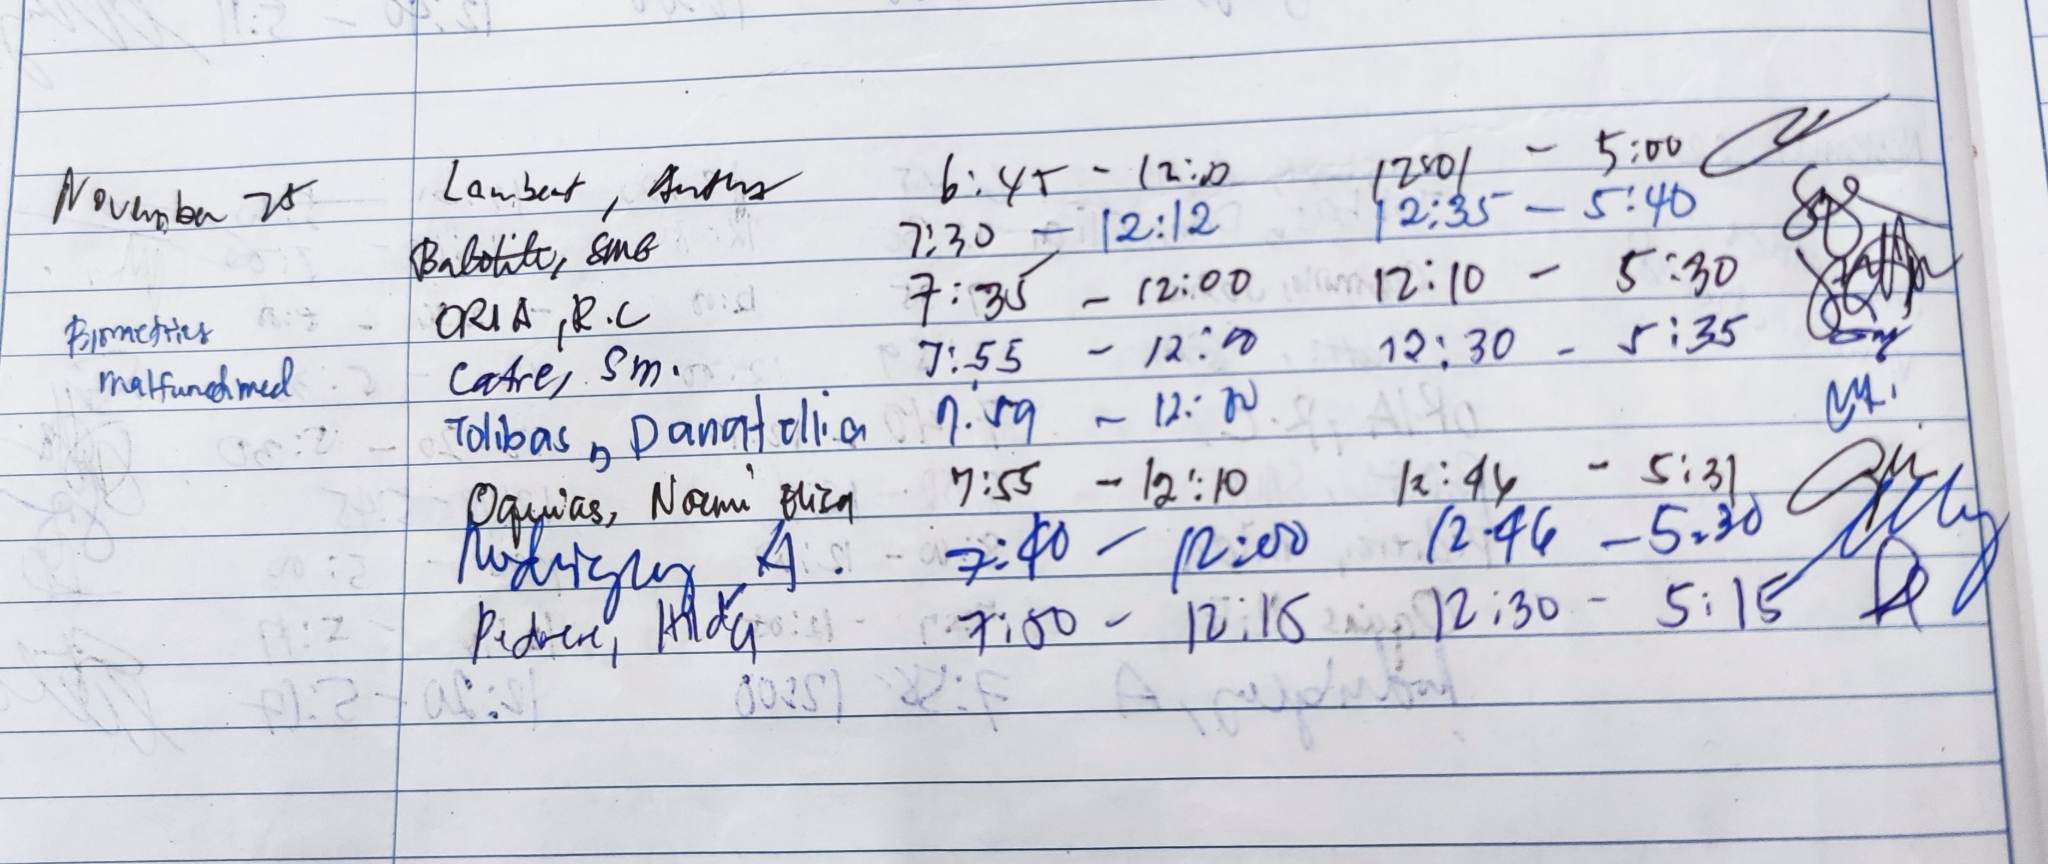 November 25 Lambert, 6:45 - 12:00 12:01 - 5:00
Babotite, SMB 7:30 - 12:12 12:35 - 5:40
ORIA, R.C 7:35 - 12:00 12:10 - 5:30
Biometrics
Catre, Sm. 7:55 - 12:00 12:30 - 5:35
malfunctioned
Tolibas, Danafellia 7:59 - 12:00
Oquias, Noemi Eliza 7:55 - 12:10 12:46 - 5:31
Rodriguez, A. 7:40 - 12:00 12:46 - 5:30
Pedrere, Hilda 7:50 - 12:15 12:30 - 5:15